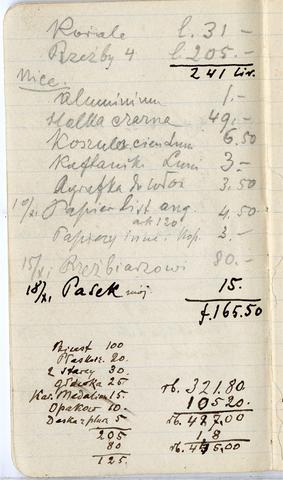 Korale l. 31 –
Rzeźby 4 l. 205. –
241 Lir.
Nice.
Aluminium 1. –
Halka czarna 49. –
Koszulka cienka 6.50
Kaftanik 3. –
Agrafka do włos 3.50
10/XI Papier list ang 4.50
ark 120
Papiery inne i kop. 3. –
15/XI Rzeźbiarzowi 80. –
18/XI Pasek mój 15.
f. 165.50
Biust 100
Płaskorz. 20.
2 starcy 30.
Główka 25
Medalion 15
Opakow 10.
5
205
80
125.
rb. 321.80
105 20.
rb. 427.00
18
rb. 445.00